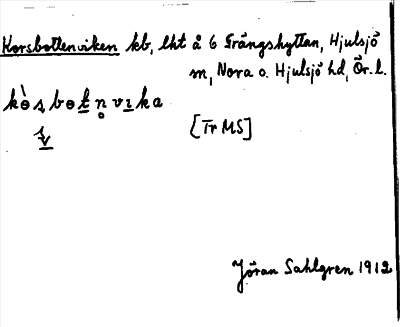 Korsbottenviken kb, lht å 6 Grängshyttan, Hjulsjö
m, Nora o. Hjulsjö hd, Ör. l.
[Tr MS]
Jöran Sahlgren 1912